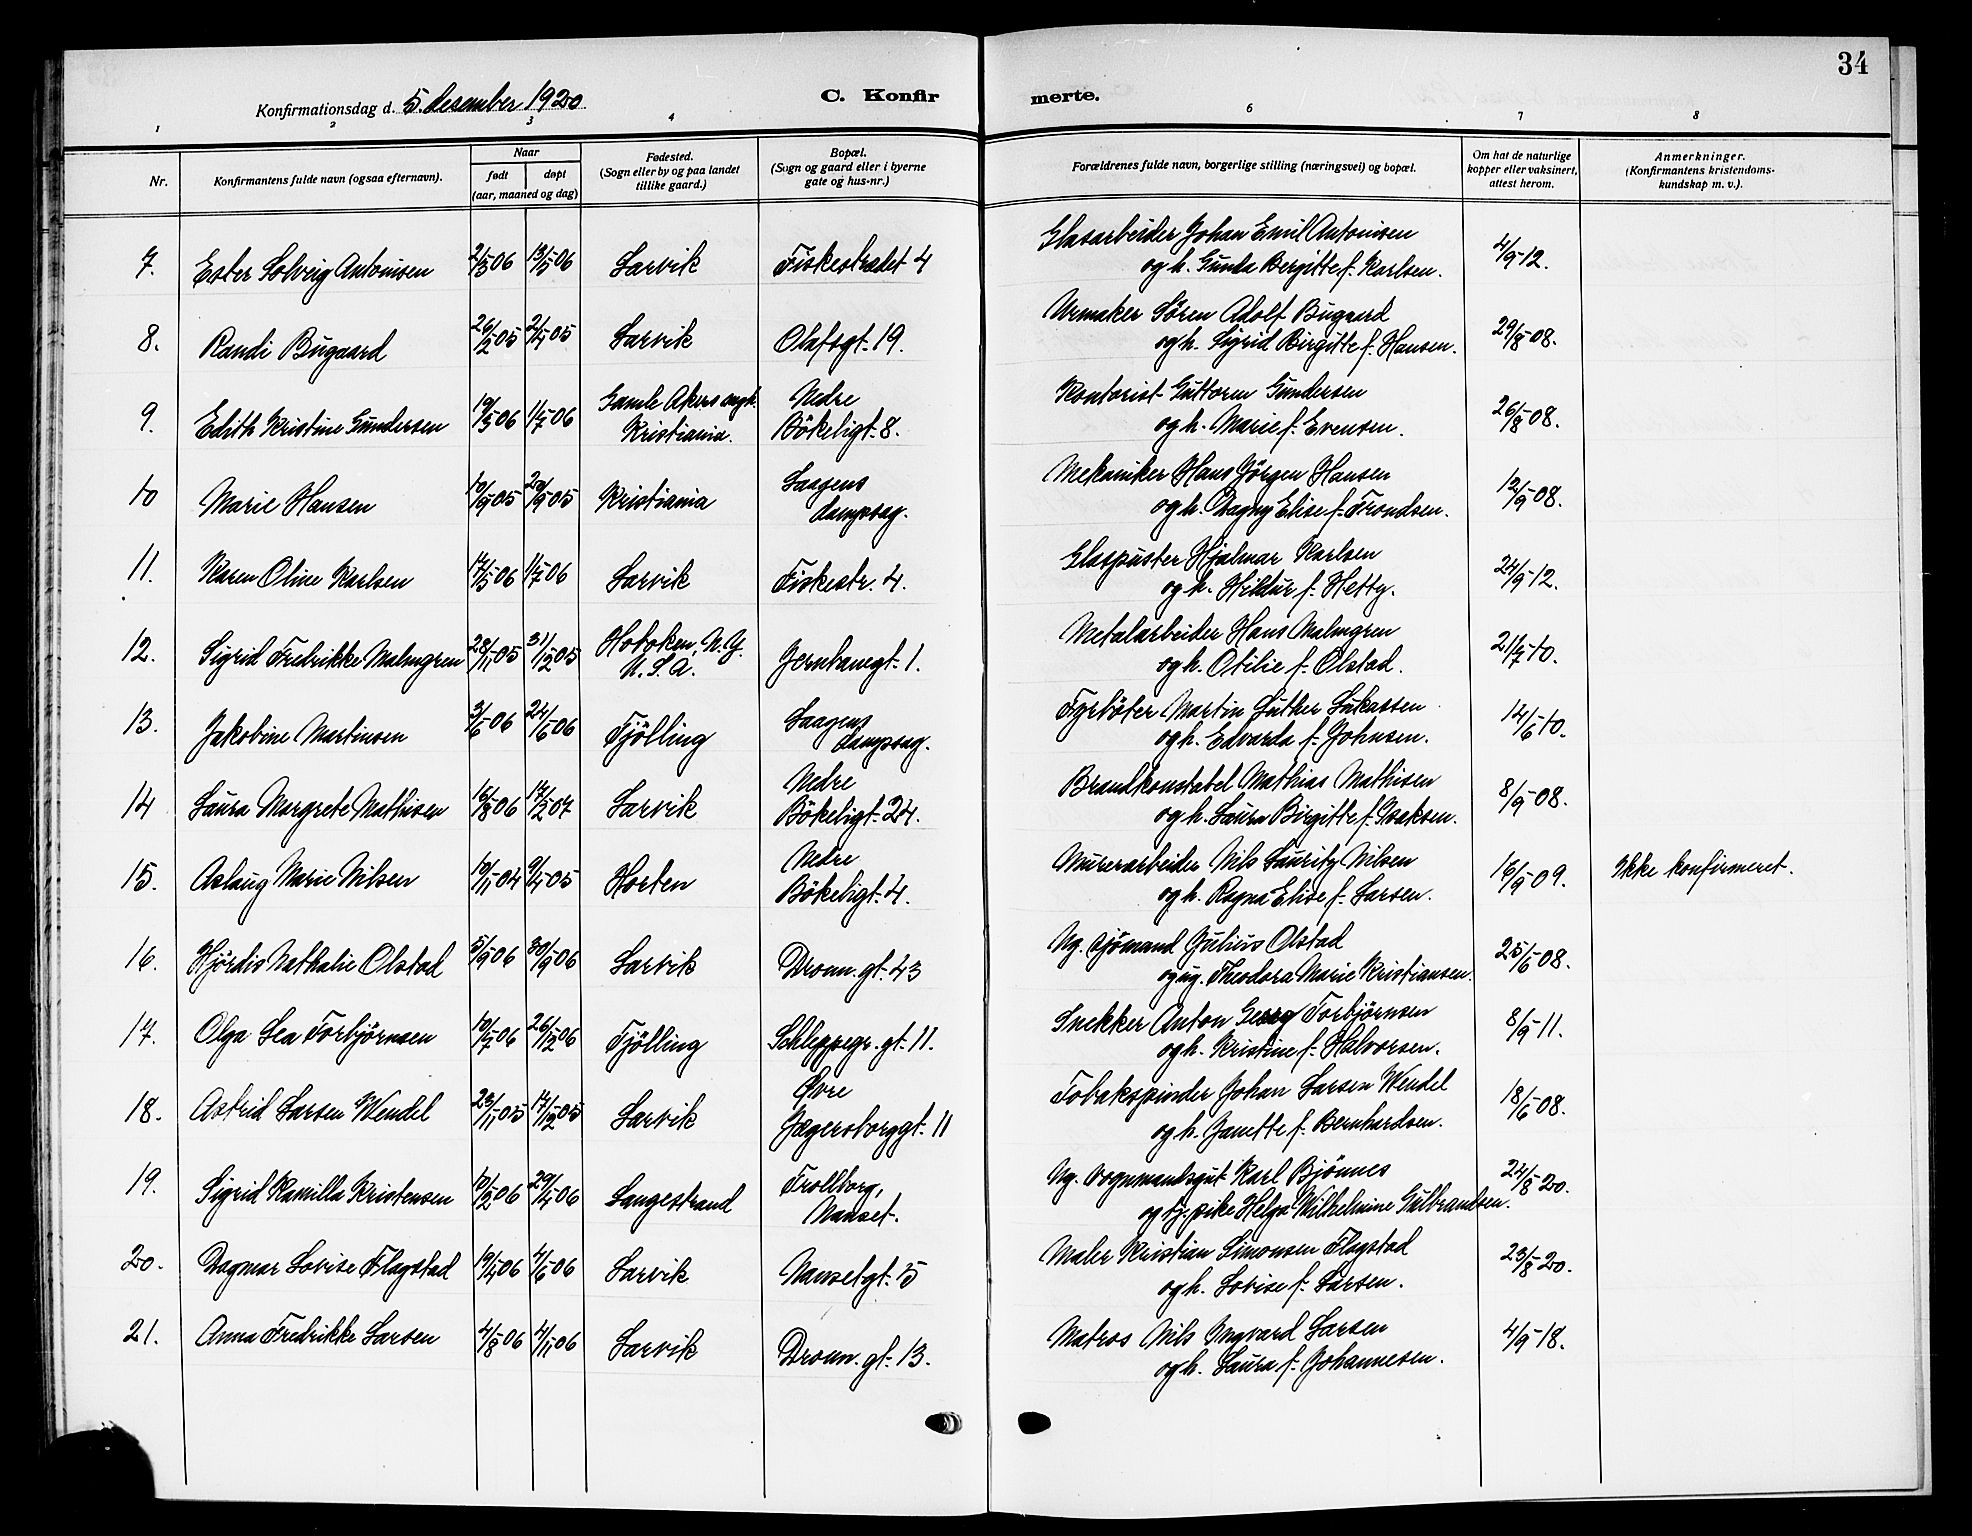 34
Konfirmationsdag d. 5. desember 1920
C. Konfir merte.
1 2 3 4 5 6 7 8
Nr.
Konfirmantens fulde navn (ogsaa efternavn).
Naar
født
døpt
(aar, maaned og dag)
Fødested.
(Sogn eller by og paa landet
tillike gaard.)
Bopæl.
(Sogn og gaard eller i byerne
gate og hus-nr.)
Forældrenes fulde navn, borgerlige stilling (næringsvei) og bopæl.
Om hat de naturlige
kopper eller vaksinert,
attest herom.
Anmerkninger.
(Konfirmantens kristendoms-
kundskap m. v.).
7. Ester Solveig Antonisen 2/5-06 13/5-06 Larvik Fiskestrædet 4 Glasarbeider Johan Emil Antonisen 4/9-12.
og h. Gunda Bergitte f. Karlsen.
8. Randi Bugaard 26/2-05 2/4-05 Larvik Olafsgt. 19. Urmaker Sören Adolf Bugaard 29/8-08.
og h. Sigrid Birgitte f. Hansen.
9. Edith Kristine Gundersen 19/3-06 1/7-06 Gamle Akers mgh. Nedre Kontorist Guttorm Gundersen 26/8-08.
Kristiania. Bökeligt. 8. og h. Marie f. Evensen.
10 Marie Hansen 10/9-05 20/9-05 Kristiania Laagens Mekaniker Hans Jörgen Hansen 12/9-08.
dampsag. og h. Dagny Elise f. Trondsen.
11. Karen Oline Karlsen 14/5-06 1/7-06 Larvik Fiskestr. 4. Glaspuster Hjalmar Karlsen 24/9-12.
og h. Hildur f. Hetty.
12. Sigrid Fredrikke Malmgren 28/11-05 31/12-05 Hoboken, N.Y. Jernbanegt. 1. Metalarbeider Hans Malmgren 21/7-10.
U.S.A. og h. Otilie f. Olstad.
13. Jakobine Martinsen 3/6-06 24/6-06 Tjölling Laagens Fyrböter Martin Luther Lukassen 14/6-10.
dampsag. og h. Edvarda f. Johnsen.
14 Laura Margrete Mathisen 16/8-06 17/2-07 Larvik Nedre Brandkonstabel Mathias Mathisen 8/9-08.
Bökeligt. 24. og h. Laura Birgitte f. Isaksen.
15. Aslaug Marie Nilsen 10/11-04 9/4-05 Horten Nedre Murerarbeider Nils Lauritz Nilsen 16/9-09. Ikke konfirmeret.
Bökeligt. 4. og h. Ragna Elise f. Larsen.
16. Hjördis Nathalie Olstad 5/9-06 30/9-06 Larvik Dronn. gt. 43 Ug. sjömand Julius Olstad 25/6-08.
og ug. Theodora Marie Kristiansen.
17. Olga Lea Torbjörnsen 10/7-06 26/12-06 Tjölling Schleppegr. gt. 11. Snekker Anton Georg Torbjörnsen 8/9-11.
og h. Kristine f. Halvorsen.
18. Astrid Larsen Wendel 23/11-05 17/12-05 Larvik Øvre Tobakspinder Johan Larsen Wendel 18/6-08.
Jægersborggt. 11 og h. Janette f. Bernhardsen.
19. Sigrid Kamilla Kristensen 10/2-06 29/4-06 Langestrand Trollborg, Ug. vognmandsgut Karl Bjönnes 24/8-20.
Nanset. og tj.pike Helga Wilhelmine Gulbrandsen.
20. Dagmar Lovise Flagstad 19/4-06 4/6-06 Larvik Nansetgt. 5 Maler Kristian Simonsen Flagstad 23/8-20.
og h. Lovise f. Larsen.
21. Anna Fredrikke Larsen 4/8-06 4/11-06 Larvik Dronn. gt. 13. Matros Nils Ingvard Larsen 4/9-18.
og h. Laura f. Johannesen.